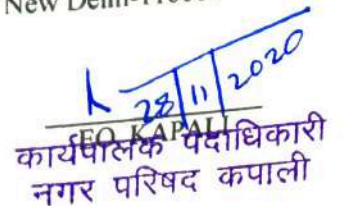 New Delhi-
28/11/2020
KAPALI
कार्यपालक पदाधिकारी
नगर परिषद कपाली